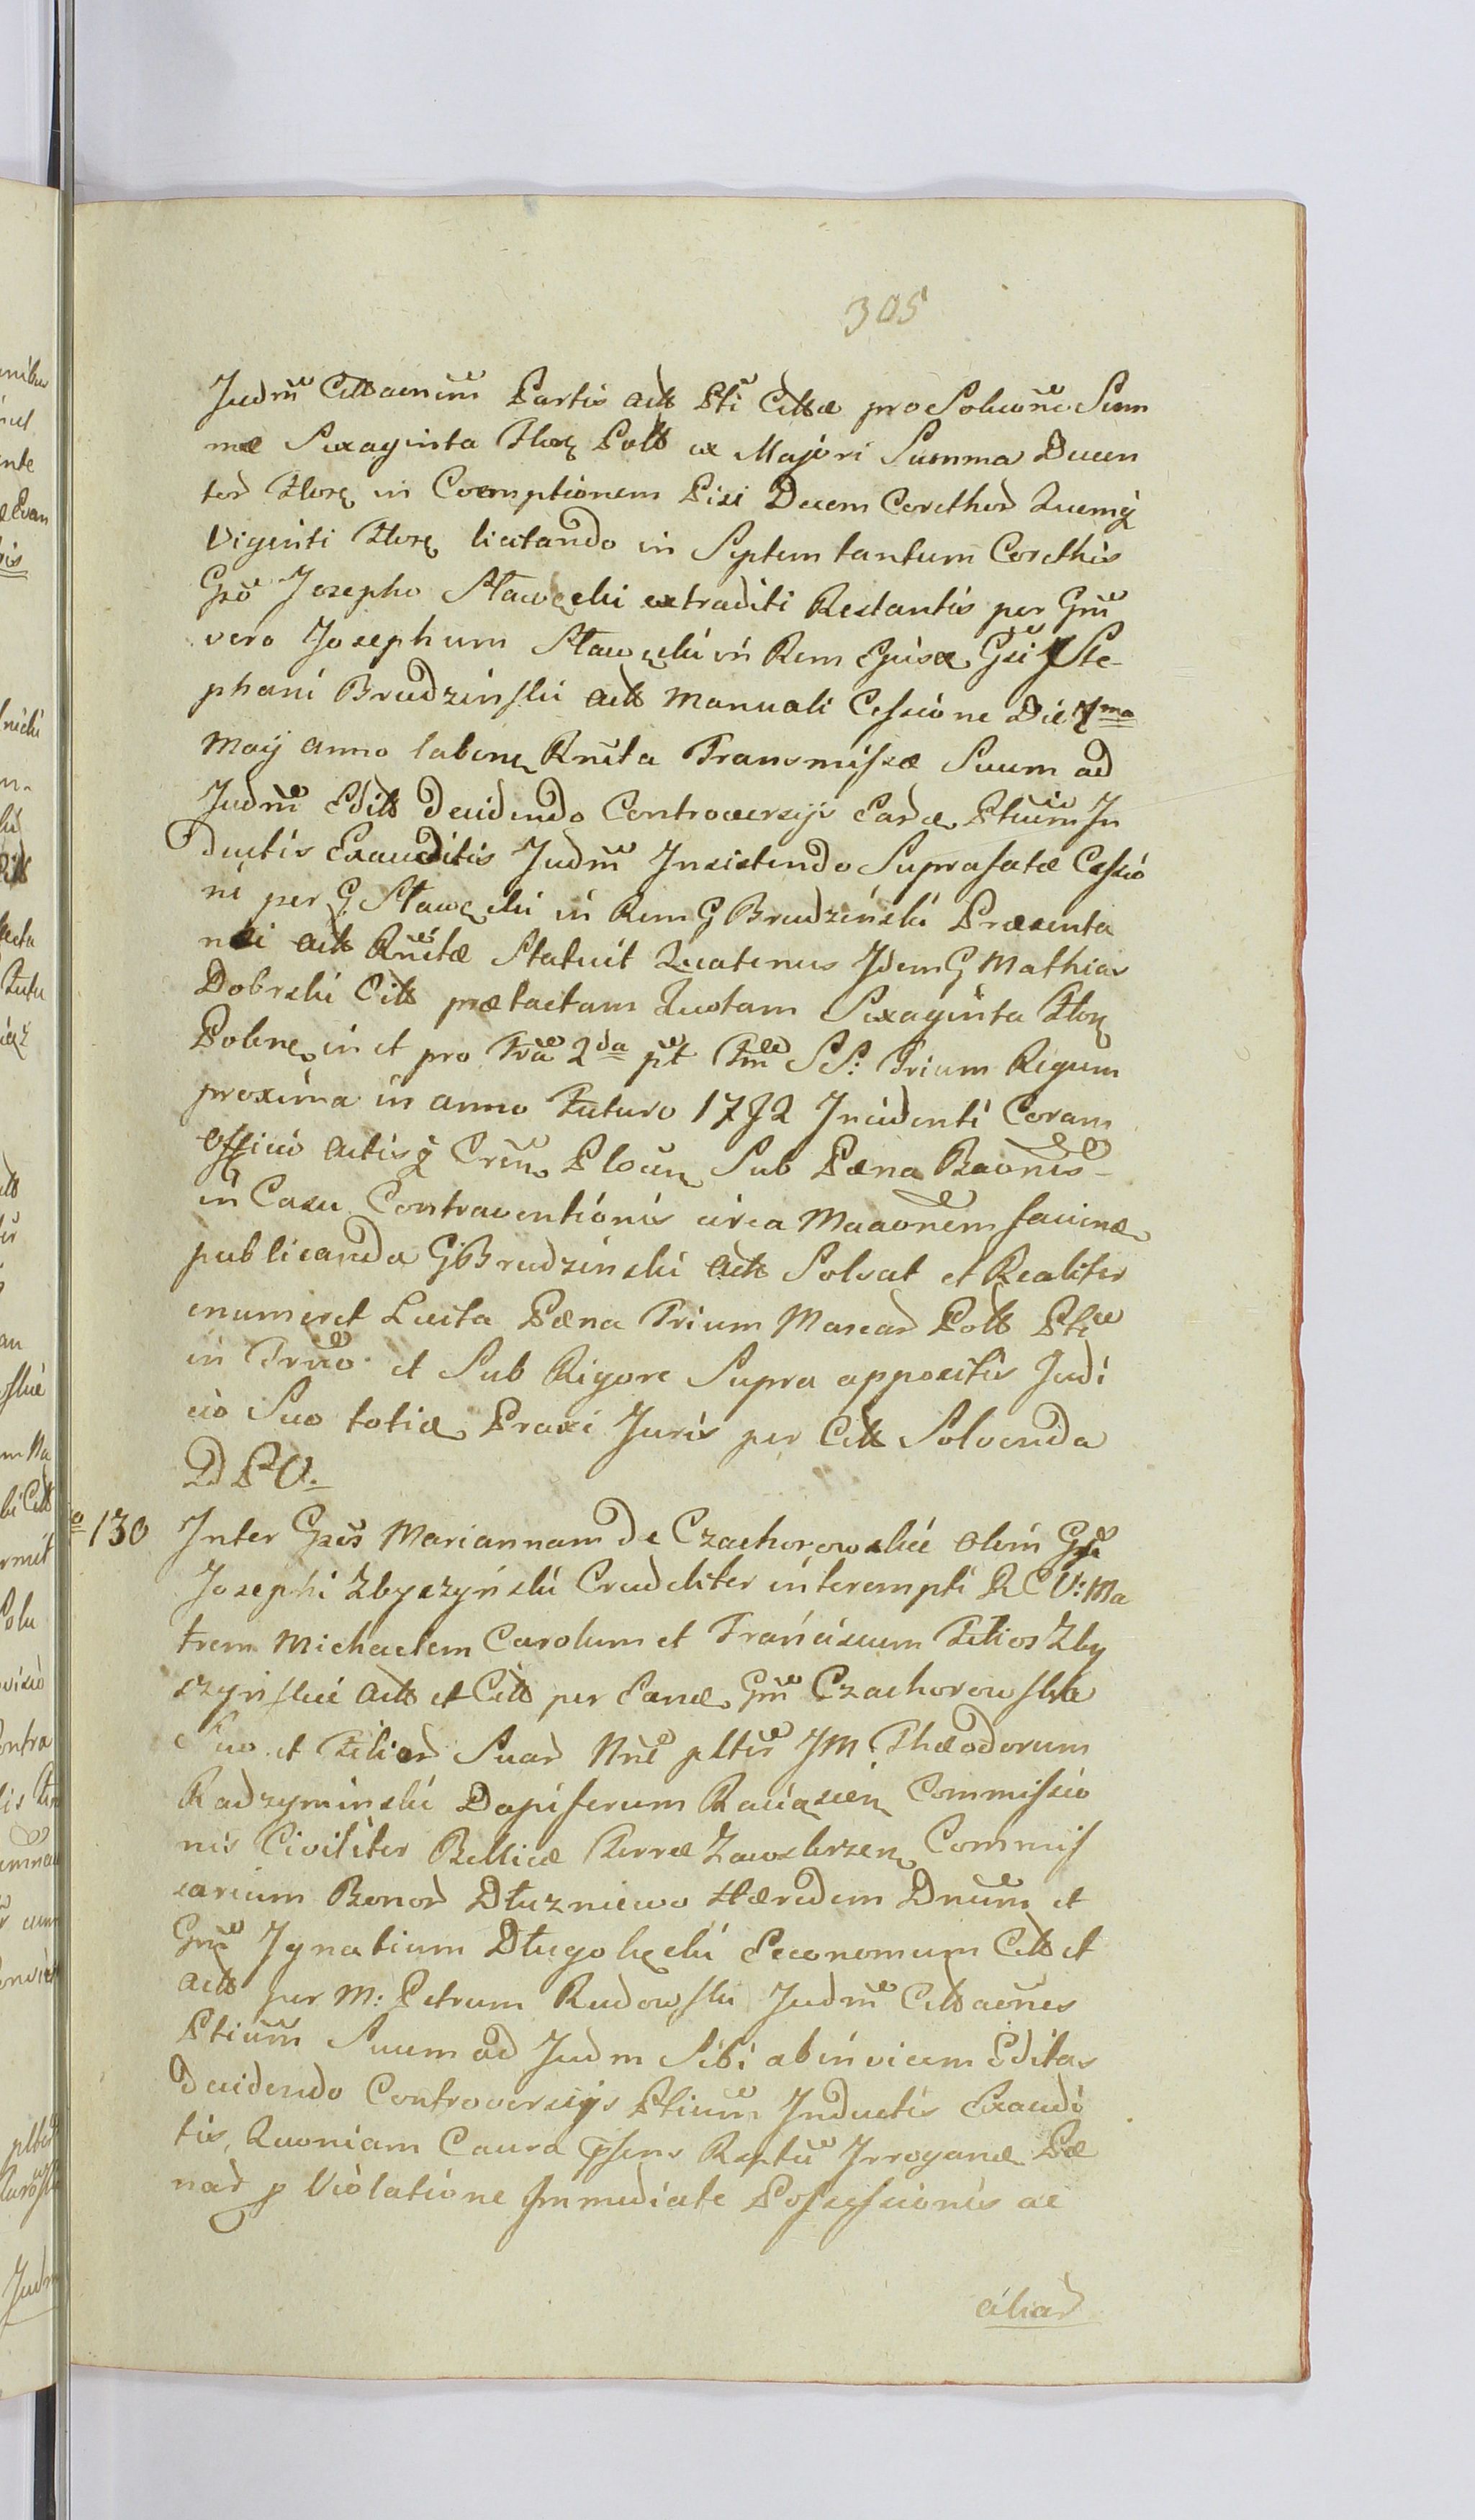 305
Judm̃ Cittaenim̃ Partis Actt Pti Cittæ pro Soluõne Sum
mæ Sexaginta Flor. Poltt ex Majori Summa Ducen
tor Flor. in Coemptionem Pisi Decem Corethor Quemq
Viginti Flor. licitando in Septem tantum Corethis
Gsõ Josepho Sławęcki extraditi Restantis per Gm̃
vero Josephum Sławęcki in Rem Ejusd. Gsi Ste-
phani Brudzinski Actt Manuali Cessione Die 7ma
Maij Anno laben. Rñita Transmissæ Suum ad
Judm̃ Editt Decidendo Controversijs Eard. Ptium̃ In
ductis Exauditis Judm̃ Insistendo Suprafatæ Cessio
ni per G Sławęcki in Rem G Brudzinski Præsenta
nei Actt Rñitæ Statuit Quatenus Idem G Mathias
Dobrski Citt prætactam Quotam Sexaginta Flor.
Polne. in et pro Fra 2da pt Fm̃ SS: Trium Regum
proxima in anno Futuro 1792 Incidenti Coram
Officio Actisq Crẽn Plocen. Sub Pæna Baõnis
in Casu Contraventionis circa Maaõnem facien.
publicanda G Brudzinski Actt Solvat et Realiter
enumeret Lucta Pæna Trium Marcar Poltt Pti
in Trm̃o et Sub Rigore Supra appositis Judi
cio Suo totid. Praxi Juris per Citt Solvenda
D P O.
o 130 Inter Gsos Mariannam de Czachorowskie olim Gsi
Josephi Zbyszyński Crudeliter interempti R C V: Ma
trem Michaelem Carolum et Franciscum Filios Zby
szyńskie Actt et Citt per Eand. Gm̃ Czachorowska
Suo et Filior Suor Nnẽ plter JM Theodorum
Radzyminski Dapiferum Raciązien. Commissio
nis Civiliter Bellicæ Terræ Zawskrzen. Commis
sarium Bonor Dłuzniewo Hæredem Dnum̃ et
Gm̃ Ignatium Długołęcki Œconomum Citt et
Actt per M: Petrum Rudowski Judm̃ Cittaões
Ptium̃ Suum ad Judm Sibi abinvicem Editas
Decidendo Controversijs Ptium̃ Inductis Exaudi
tis, Quoniam Causa Psens Rsptũ Irrogand. Pæ
nar p Violatione Immediate Possessionis ac
aliar